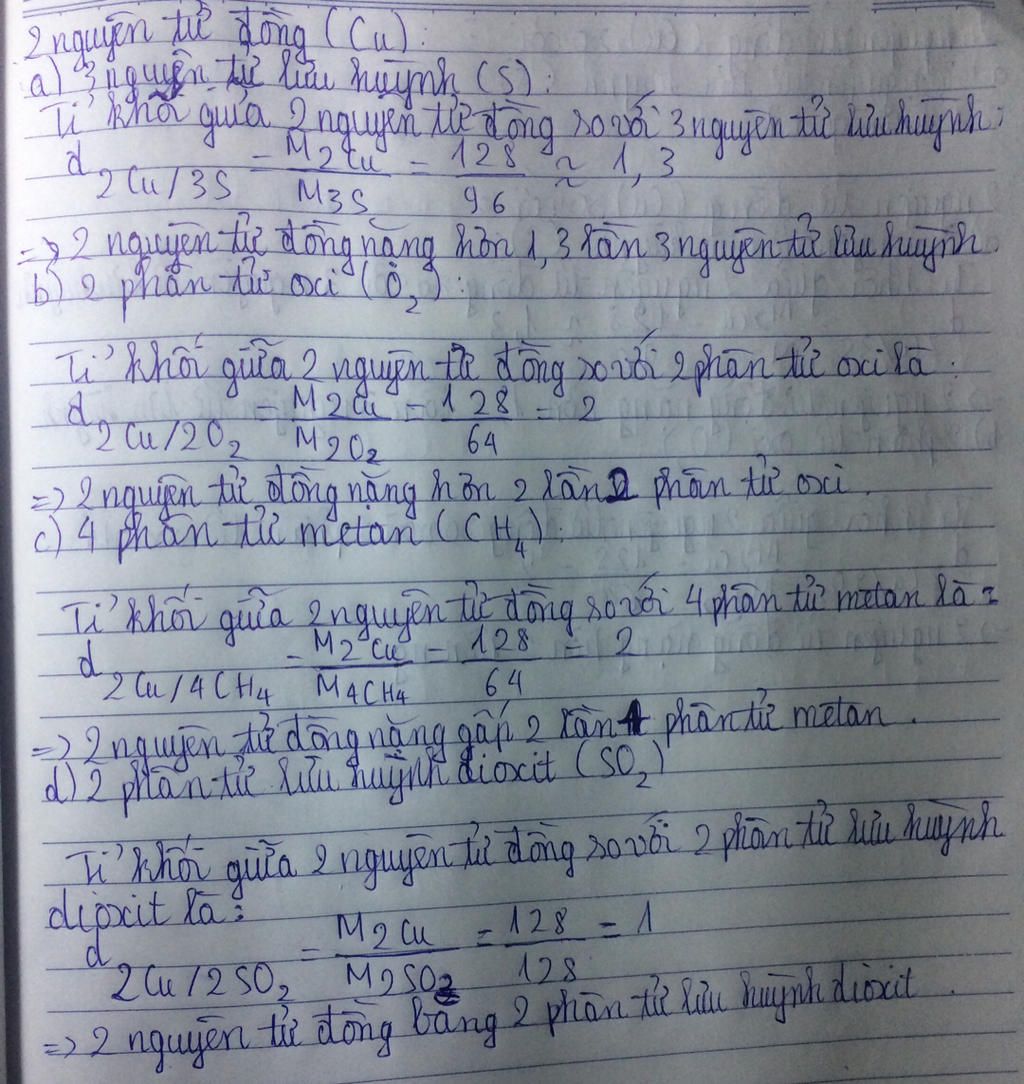 2 nguyên tử đồng (Cu):
a) 3 nguyên tử lưu huỳnh (S):
Tỉ khối giữa 2 nguyên tử đồng so với 3 nguyên tử lưu huỳnh:
d 2Cu/3S = M2Cu / M3S = 128 / 96 ≈ 1,3
=> 2 nguyên tử đồng nặng hơn 1,3 lần 3 nguyên tử lưu huỳnh.
b) 2 phân tử oxi (O₂):
Tỉ khối giữa 2 nguyên tử đồng so với 2 phân tử oxi là:
d 2Cu/2O₂ = M2Cu / M2O₂ = 128 / 64 = 2
=> 2 nguyên tử đồng nặng hơn 2 lần 2 phân tử oxi.
c) 4 phân tử metan (CH₄):
Tỉ khối giữa 2 nguyên tử đồng so với 4 phân tử metan là:
d 2Cu/4CH₄ = M2Cu / M4CH₄ = 128 / 64 = 2
=> 2 nguyên tử đồng nặng gấp 2 lần 4 phân tử metan.
d) 2 phân tử lưu huỳnh đioxit (SO₂)
Tỉ khối giữa 2 nguyên tử đồng so với 2 phân tử lưu huỳnh
đioxit là:
d 2Cu/2SO₂ = M2Cu / M2SO₂ = 128 / 128 = 1
=> 2 nguyên tử đồng bằng 2 phân tử lưu huỳnh đioxit.